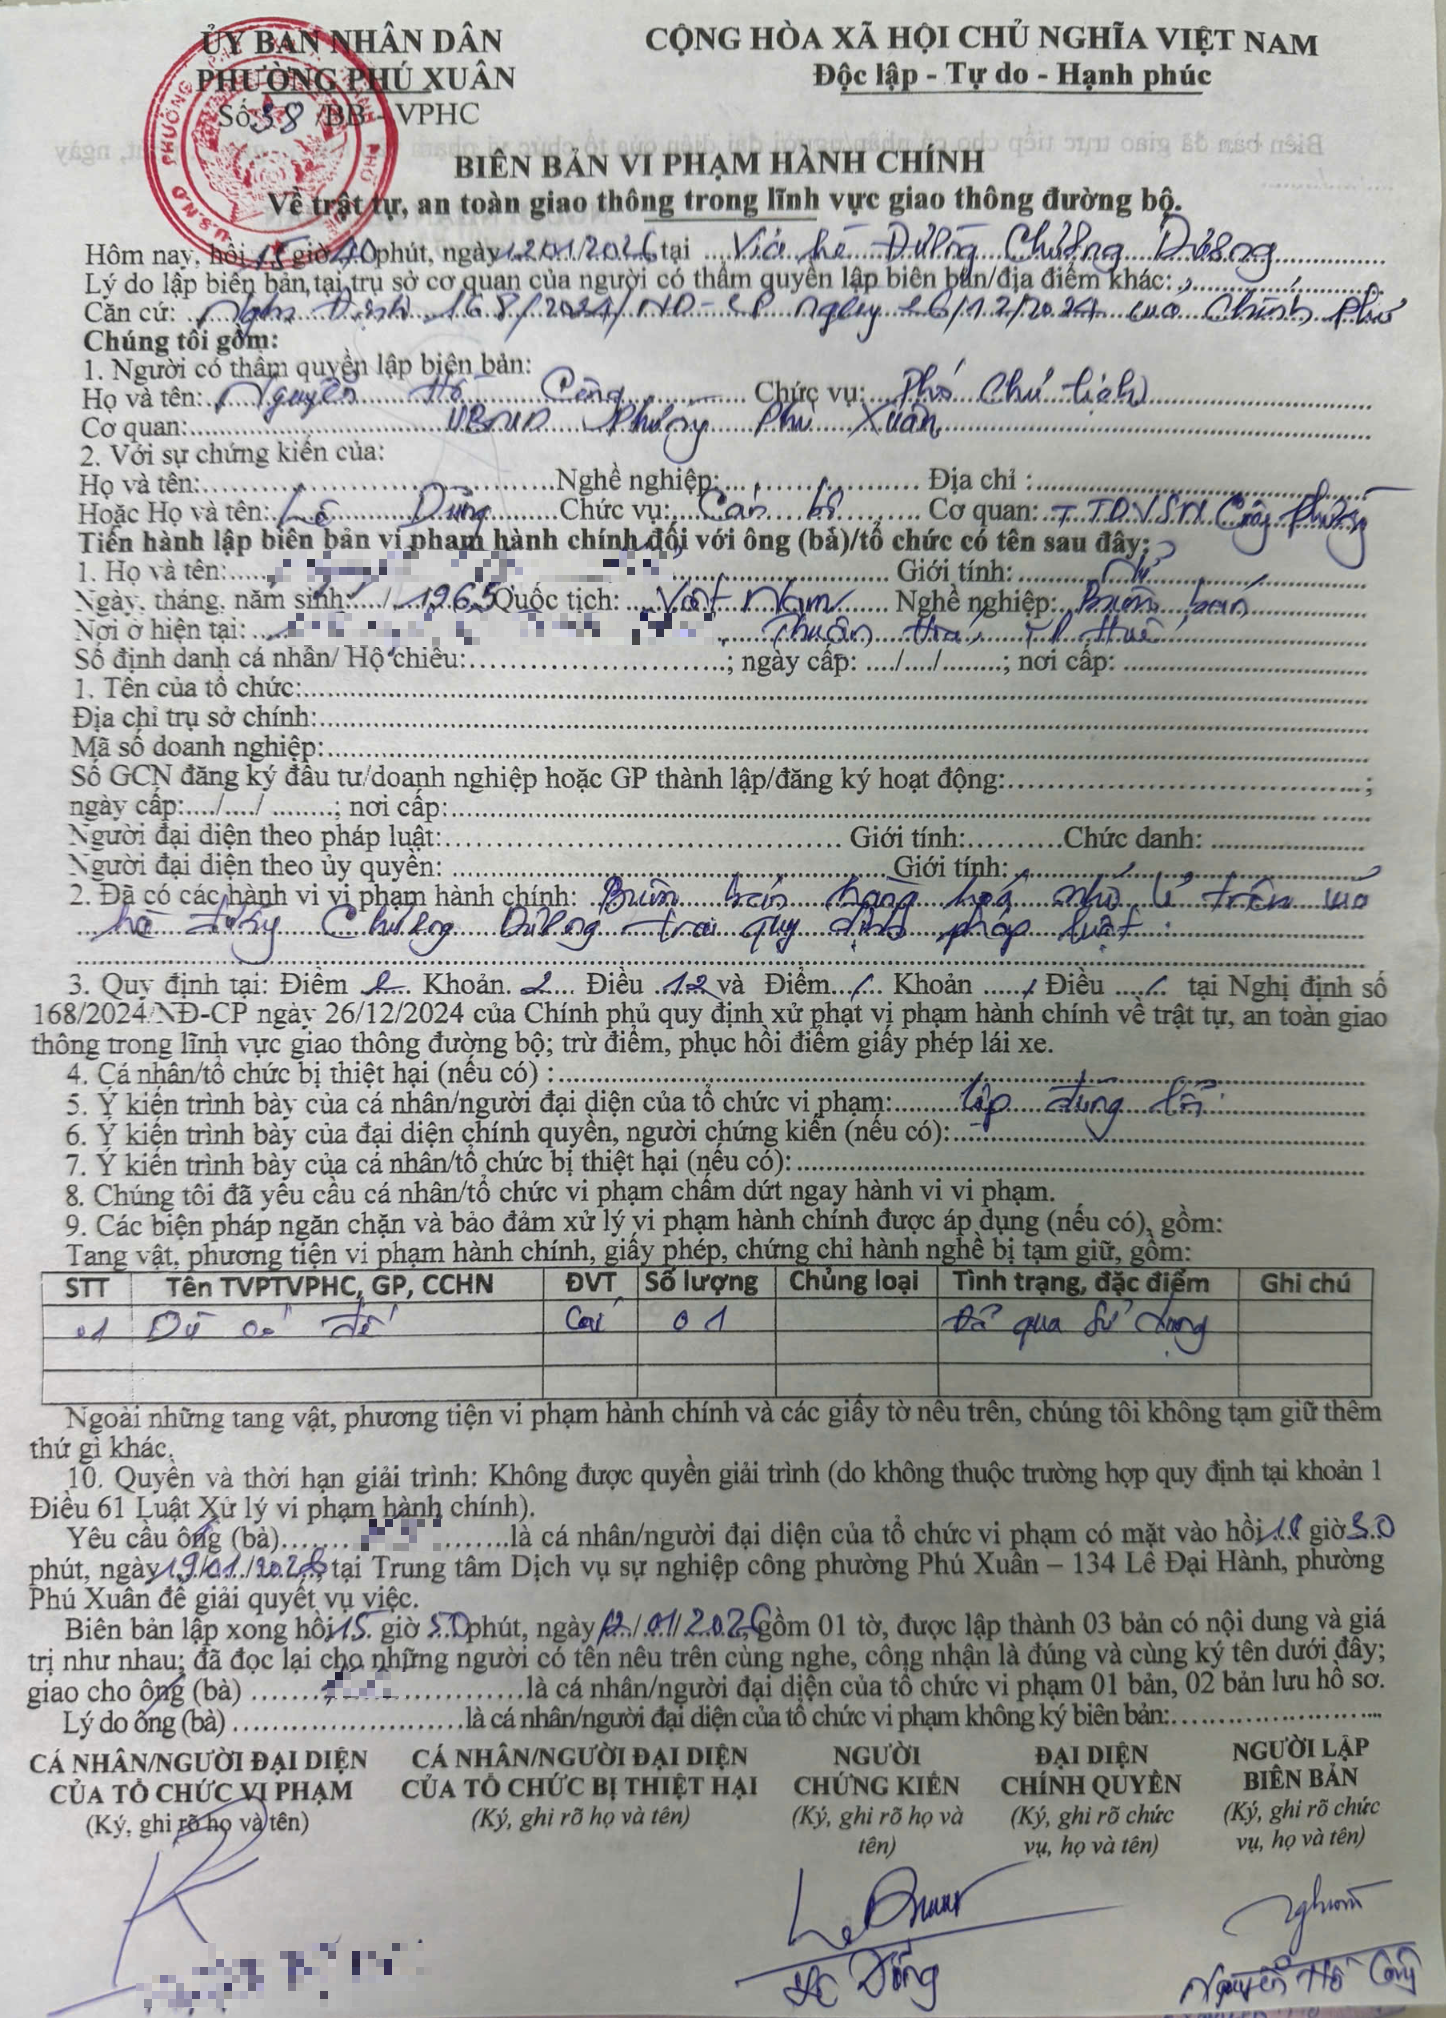 ỦY BAN NHÂN DÂN
PHƯỜNG PHÚ XUÂN
Số 38 /BB - VPHC
CỘNG HÒA XÃ HỘI CHỦ NGHĨA VIỆT NAM
Độc lập - Tự do - Hạnh phúc
BIÊN BẢN VI PHẠM HÀNH CHÍNH
Về trật tự, an toàn giao thông trong lĩnh vực giao thông đường bộ.
Hôm nay, hồi 15 giờ 40 phút, ngày 12/01/2026 tại Vỉa hè Đường Chương Dương
Lý do lập biên bản tại trụ sở cơ quan của người có thẩm quyền lập biên bản/địa điểm khác:
Căn cứ: Nghị Định 168/2024/NĐ-CP ngày 26/12/2024 của Chính Phủ
Chúng tôi gồm:
1. Người có thẩm quyền lập biên bản:
Họ và tên: Nguyễn Hồ Công Chức vụ: Phó Chủ tịch
Cơ quan: UBND Phường Phú Xuân
2. Với sự chứng kiến của:
Họ và tên: Nghề nghiệp: Địa chỉ :
Hoặc Họ và tên: Lê Dũng Chức vụ: Cán bộ Cơ quan: TTDVSN Công Phường
Tiến hành lập biên bản vi phạm hành chính đối với ông (bà)/tổ chức có tên sau đây:
1. Họ và tên: Giới tính: Nữ
Ngày, tháng, năm sinh: / /1965 Quốc tịch: Việt Nam Nghề nghiệp: Buôn bán
Nơi ở hiện tại: Thuận Hoá, TP Huế
Số định danh cá nhân/ Hộ chiếu: ; ngày cấp: ..../..../........; nơi cấp:
1. Tên của tổ chức:
Địa chỉ trụ sở chính:
Mã số doanh nghiệp:
Số GCN đăng ký đầu tư/doanh nghiệp hoặc GP thành lập/đăng ký hoạt động: ;
ngày cấp:..../..../ ........; nơi cấp:
Người đại diện theo pháp luật: Giới tính: Chức danh:
Người đại diện theo ủy quyền: Giới tính:
2. Đã có các hành vi vi phạm hành chính: Buôn bán hàng hoá nhỏ lẻ trên vỉa
hè đường Chương Dương trái quy định pháp luật.
3. Quy định tại: Điểm Khoản 2 Điều 12 và Điểm / Khoản / Điều / tại Nghị định số
168/2024/NĐ-CP ngày 26/12/2024 của Chính phủ quy định xử phạt vi phạm hành chính về trật tự, an toàn giao
thông trong lĩnh vực giao thông đường bộ; trừ điểm, phục hồi điểm giấy phép lái xe.
4. Cá nhân/tổ chức bị thiệt hại (nếu có) :
5. Ý kiến trình bày của cá nhân/người đại diện của tổ chức vi phạm: lập đúng lỗi
6. Ý kiến trình bày của đại diện chính quyền, người chứng kiến (nếu có):
7. Ý kiến trình bày của cá nhân/tổ chức bị thiệt hại (nếu có):
8. Chúng tôi đã yêu cầu cá nhân/tổ chức vi phạm chấm dứt ngay hành vi vi phạm.
9. Các biện pháp ngăn chặn và bảo đảm xử lý vi phạm hành chính được áp dụng (nếu có), gồm:
Tang vật, phương tiện vi phạm hành chính, giấy phép, chứng chỉ hành nghề bị tạm giữ, gồm:
STT Tên TVPTVPHC, GP, CCHN ĐVT Số lượng Chủng loại Tình trạng, đặc điểm Ghi chú
01 Dù có đế Cái 01 Đã qua sử dụng
Ngoài những tang vật, phương tiện vi phạm hành chính và các giấy tờ nêu trên, chúng tôi không tạm giữ thêm
thứ gì khác.
10. Quyền và thời hạn giải trình: Không được quyền giải trình (do không thuộc trường hợp quy định tại khoản 1
Điều 61 Luật Xử lý vi phạm hành chính).
Yêu cầu ông (bà) là cá nhân/người đại diện của tổ chức vi phạm có mặt vào hồi giờ 30
phút, ngày 19/01/2026 tại Trung tâm Dịch vụ sự nghiệp công phường Phú Xuân – 134 Lê Đại Hành, phường
Phú Xuân để giải quyết vụ việc.
Biên bản lập xong hồi 15 giờ 50 phút, ngày 12/01/2026, gồm 01 tờ, được lập thành 03 bản có nội dung và giá
trị như nhau; đã đọc lại cho những người có tên nêu trên cùng nghe, công nhận là đúng và cùng ký tên dưới đây;
giao cho ông (bà) là cá nhân/người đại diện của tổ chức vi phạm 01 bản, 02 bản lưu hồ sơ.
Lý do ông (bà) là cá nhân/người đại diện của tổ chức vi phạm không ký biên bản:
CÁ NHÂN/NGƯỜI ĐẠI DIỆN
CỦA TỔ CHỨC VI PHẠM
(Ký, ghi rõ họ và tên)
CÁ NHÂN/NGƯỜI ĐẠI DIỆN
CỦA TỔ CHỨC BỊ THIỆT HẠI
(Ký, ghi rõ họ và tên)
NGƯỜI
CHỨNG KIẾN
(Ký, ghi rõ họ và
tên)
ĐẠI DIỆN
CHÍNH QUYỀN
(Ký, ghi rõ chức
vụ, họ và tên)
NGƯỜI LẬP
BIÊN BẢN
(Ký, ghi rõ chức
vụ, họ và tên)
Lê Dũng
Nguyễn Hồ Công